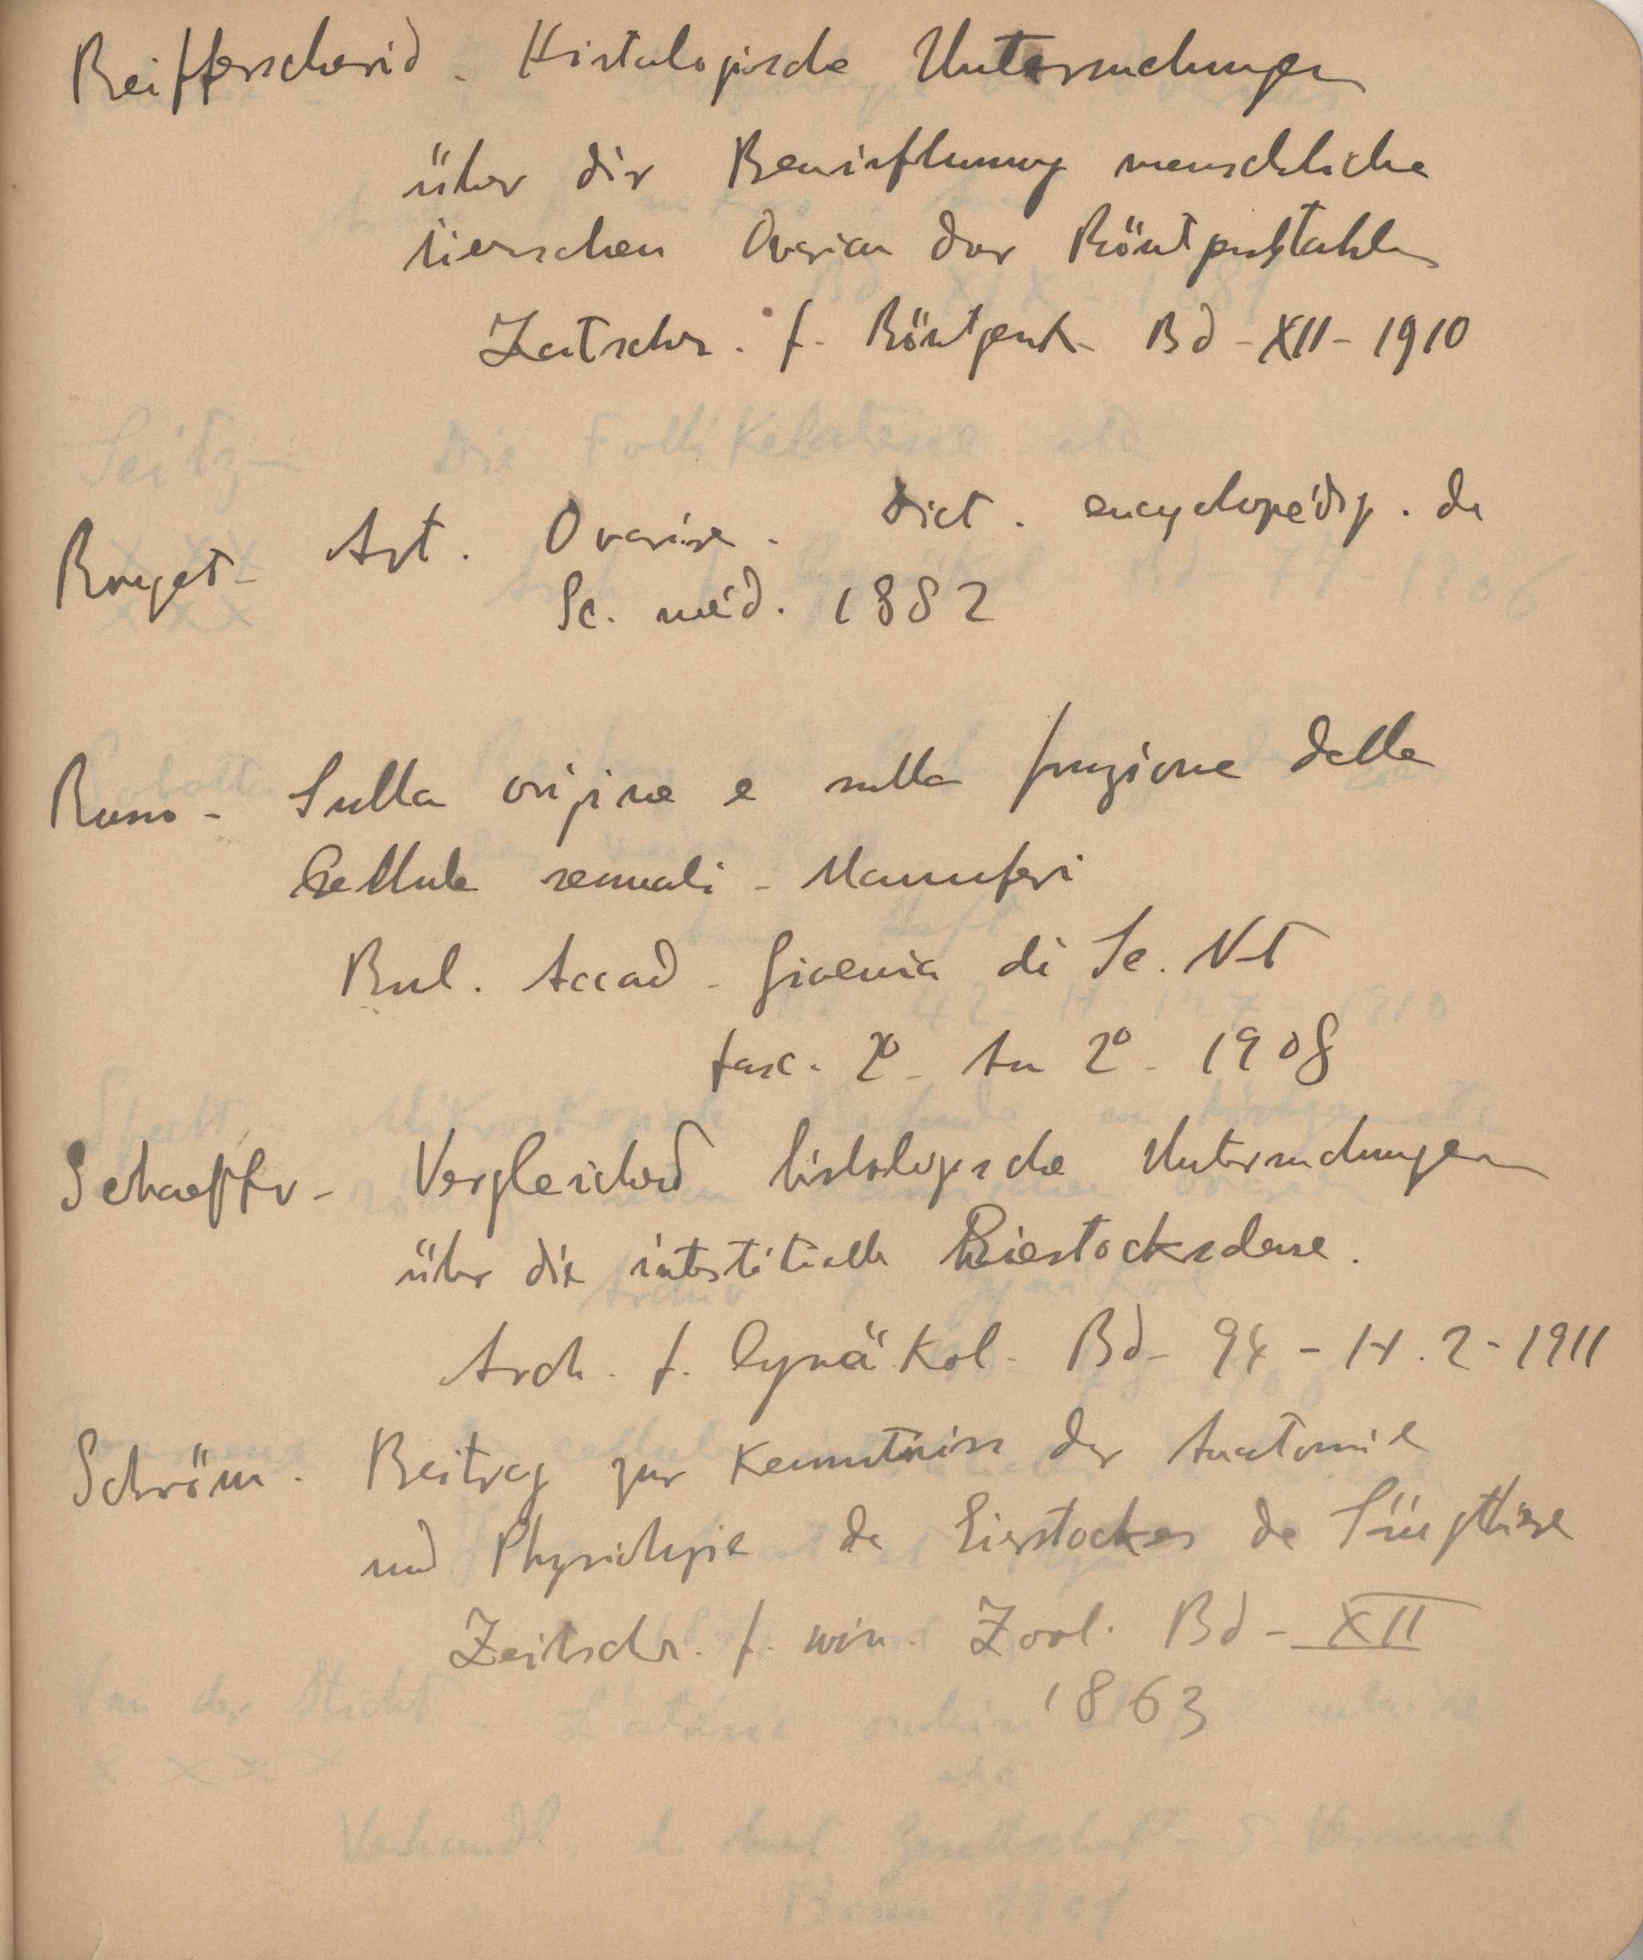 Reifferscheid. Histologische Untersuchungen
über die Beeinflussung menschliche
tierischen Ovarien der Röntgenstrahlen
Zeitschr. f. Röntgenk. Bd - XII - 1910
Rouget - Art. Ovaire. Dict. encyclopédiq. de
Sc. méd. 1882
Russo - Sulla origine e sulla funzione delle
Cellule sessuali - Mammiferi
Bul. Accad. Gioenia di Sc. Nat
fasc. 2º - An 2º - 1908
Schaeffer - Vergleichend histologische Untersuchungen
über die interstitielle Eierstocksdrüse.
Arch. f. Gynäkol. Bd - 94 - H. 2 - 1911
Schrön. Beitrag zur Kenntniss der Anatomie
und Physiologie de Eierstockes de Säugthiere
Zeitschr. f. wiss. Zool. Bd - XII
1863